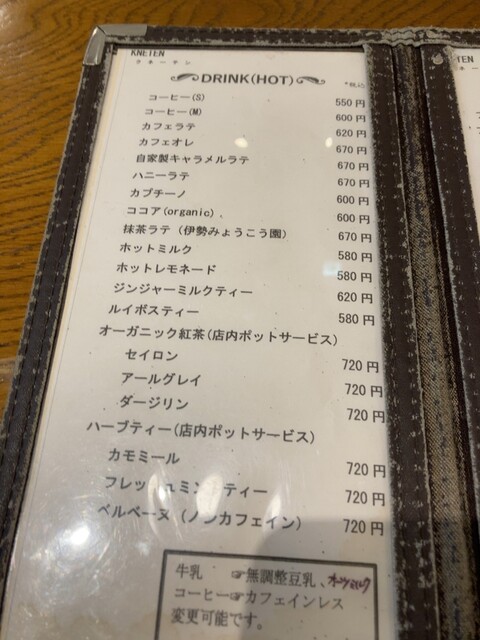 KNETEN
クネーテン
DRINK(HOT)
*税込
コーヒー(S) 550円
コーヒー(M) 600円
カフェラテ 620円
カフェオレ 670円
自家製キャラメルラテ 670円
ハニーラテ 670円
カプチーノ 600円
ココア(organic) 600円
抹茶ラテ（伊勢みょうこう園） 670円
ホットミルク 580円
ホットレモネード 580円
ジンジャーミルクティー 620円
ルイボスティー 580円
オーガニック紅茶(店内ポットサービス)
セイロン 720円
アールグレイ 720円
ダージリン 720円
ハーブティー(店内ポットサービス)
カモミール 720円
フレッシュミントティー 720円
ベルベーヌ（ノンカフェイン） 720円
牛乳 ☞無調整豆乳、オーツミルク
コーヒー☞カフェインレス
変更可能です。
TEN